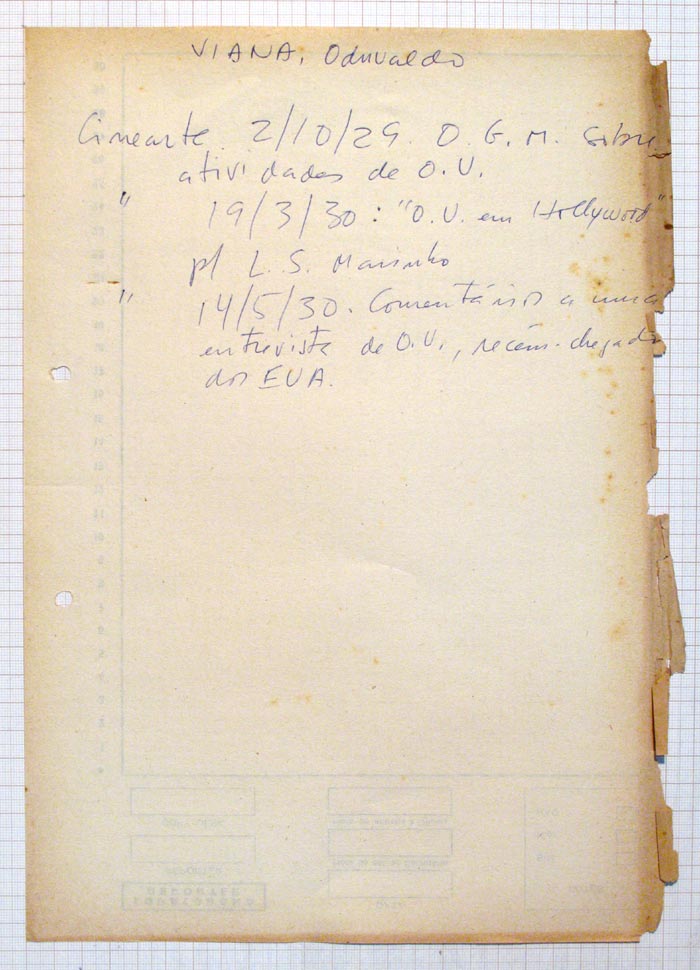 VIANA, Oduvaldo
Cinearte 2/10/29. O. G. M. sôbre
atividades de O.V.
" 19/3/30: "O.V. em Hollywood"
p/ L. S. Marinho
" 14/5/30. Comentários a uma
entrevista de O.V., recém-chegado
dos EUA.